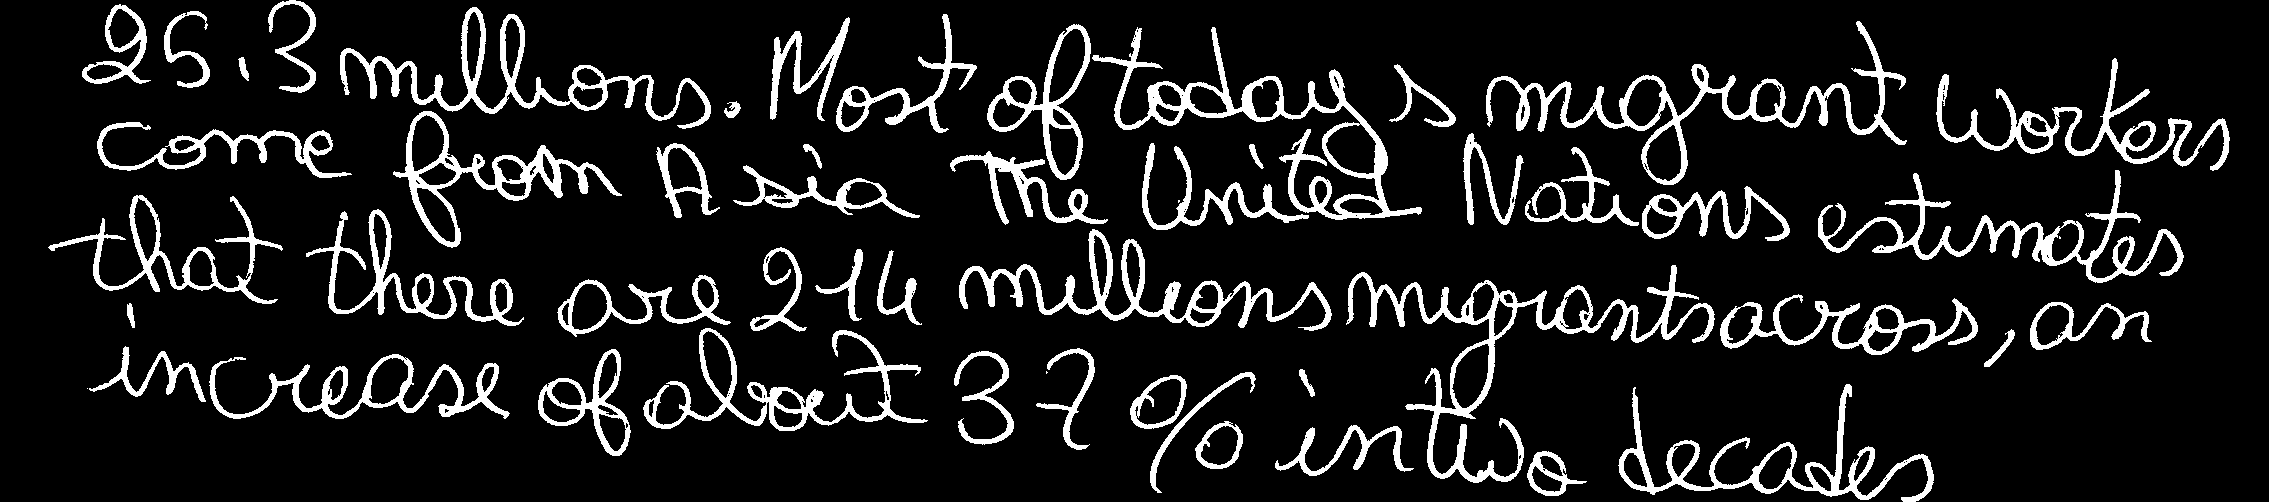 25.3 millions. Most of today s migrant workers
come from Asia The United Nations estimates
that there are 214 millions migrants across, an
increase of about 37 % in two decades